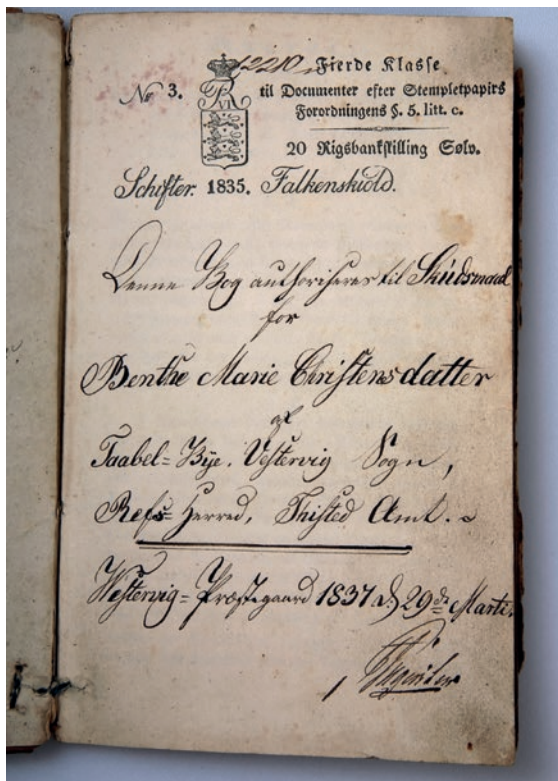 12210. Fierde Klasse
No 3. til Documenter efter Stempletpapirs
F VI Forordningens §. 5. litt. c.
20 Rigsbankskilling Sølv.
Schifter. 1835. Falkenskiold.
Denne Bog authoriseres til Skudsmaal
for
Benthe Marie Christensdatter
af
Taabel-Bye, Vestervig Sogn,
Refs-Herred, Thisted Amt.
Westervig-Præstegaard 1837 d. 29de Marti.